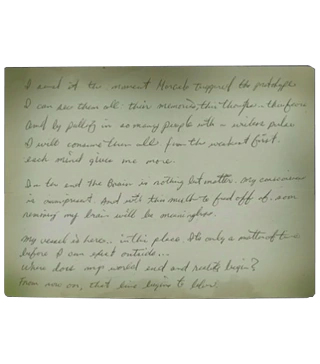 I saw it the moment Marcelo triggered the prototype
I can see them all their memories, their thoughts... their fears
And by pulling in so many people with a wireless pulse
I will consume them all from the weakest first.
each mind gives me more.
In the end the Brain is nothing but matter. My consciousness
is omnipresent. And with these minds to feed off of, soon
reviving my brain will be meaningless.
My vessel is here... in this place. It's only a matter of time
before I can exist outside...
Where does any world end and reality begin?
From now on, that line begins to blur.